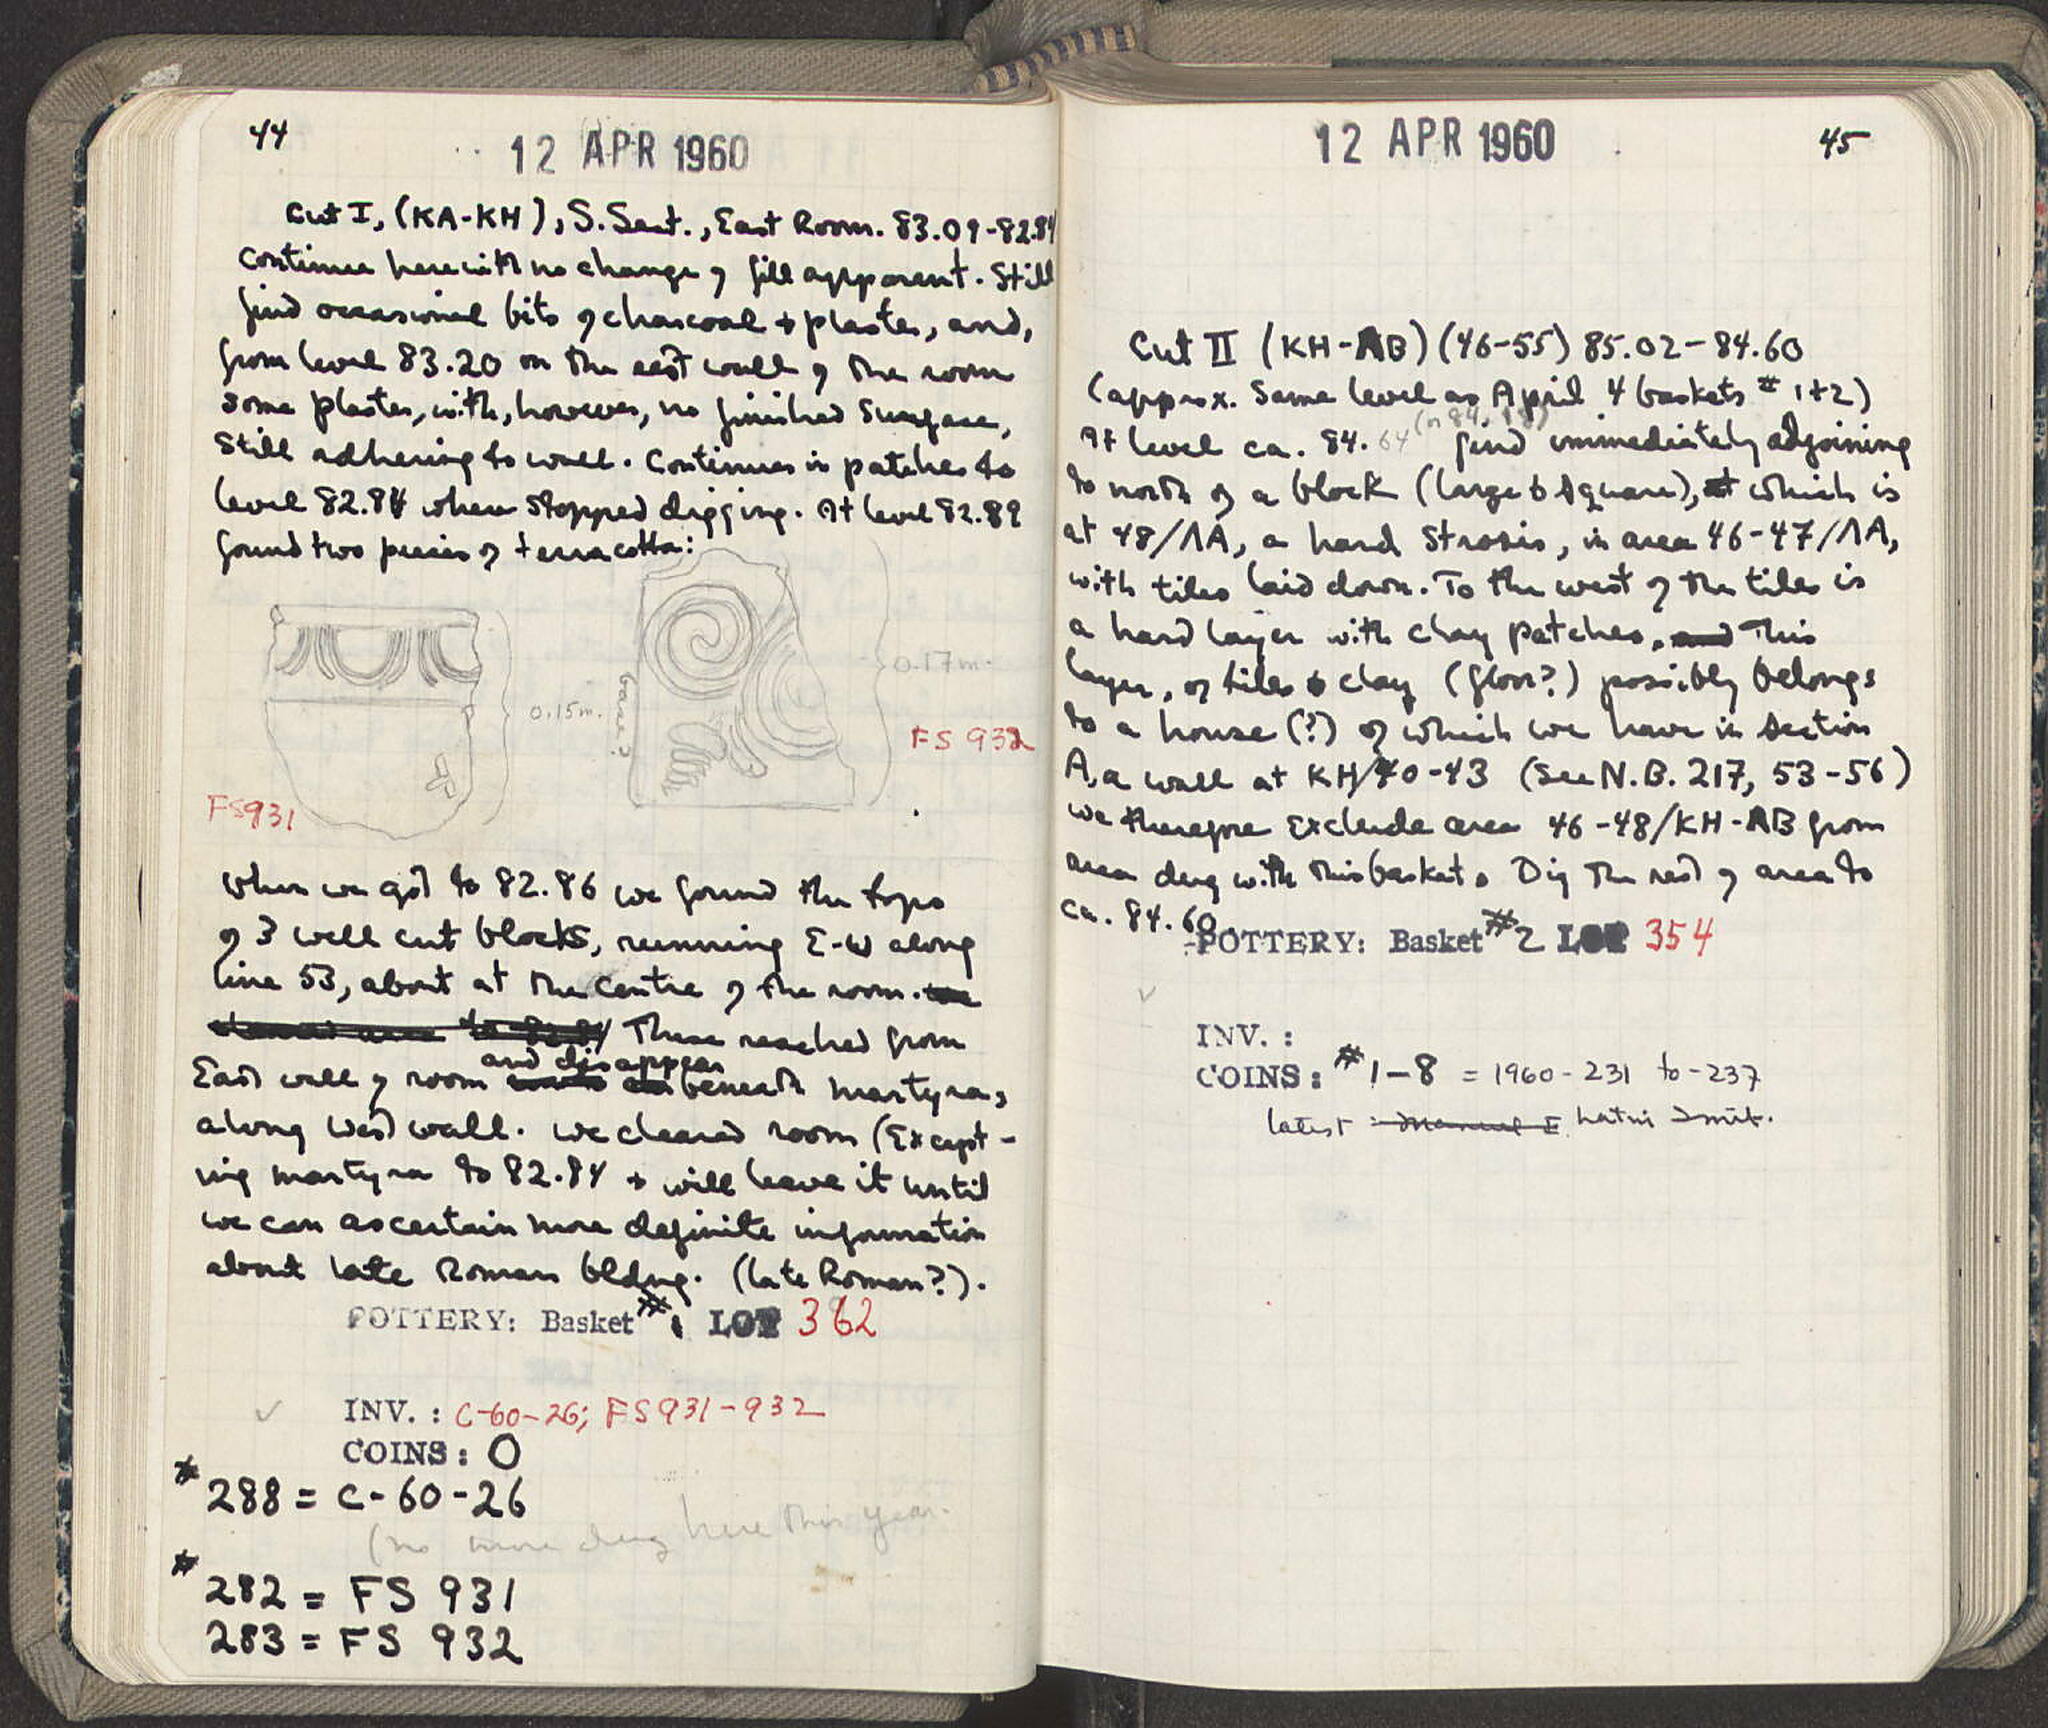 44
12 APR 1960
Cut I, (KA-KH), S. Sect., East Room. 83.09-82.84
Continue here with no change of fill apparent. Still
find occasional bits of charcoal + plaster, and,
from level 83.20 on the east wall of the room
some plaster, with, however, no finished surface,
still adhering to wall. Continues in patches to
level 82.84 where stopped digging. At level 82.89
found two pieces of terracotta:
0.15m.
brace?
0.17m.
FS 932
FS931
When we got to 82.86 we found the tops
of 3 well cut blocks, running E-W along
line 53, about at the centre of the room.
to 82.84 These reached from
and disappear
East wall of room beneath martyra,
along West wall. We cleared room (except-
ing martyra to 82.84 + will leave it until
we can ascertain more definite information
about late Roman bldng. (late Roman?).
POTTERY: Basket #1 LOT 362
INV.: C-60-26; FS931-932
COINS: 0
#288 = C-60-26
(no more dug here this year.
#282 = FS 931
283 = FS 932
12 APR 1960
45
Cut II (KH-AB) (46-55) 85.02-84.60
(approx. same level as April 4 baskets #1+2)
At level ca. 84.64 find immediately adjoining
to north of a block (large & square), which is
at 48/ΛA, a hard strosis, in area 46-47/ΛA,
with tiles laid down. To the west of the tiles is
a hard layer with clay patches. and This
layer, of tiles & clay (floor?) possibly belongs
to a house (?) of which we have in section
A, a wall at KH/40-43 (See N.B. 217, 53-56)
We therefore exclude area 46-48/KH-AB from
area dug with this basket. Dig the rest of area to
ca. 84.60.
POTTERY: Basket #2 LOT 354
INV.:
COINS: #1-8 = 1960-231 to -237
latest = Manuel I Latin Imit.